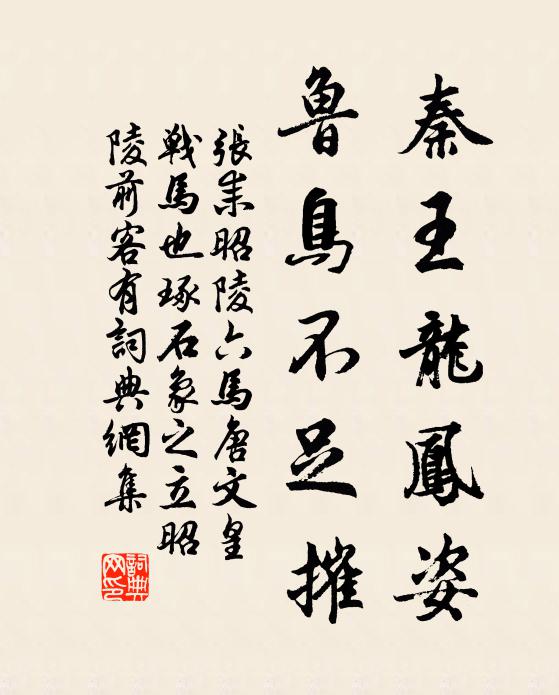 秦王龍鳳姿
魯鳥不足摧
張耒昭陵六馬唐文皇
戰馬也琢石象之立昭
陵前客有詞典網集
詞典
网印